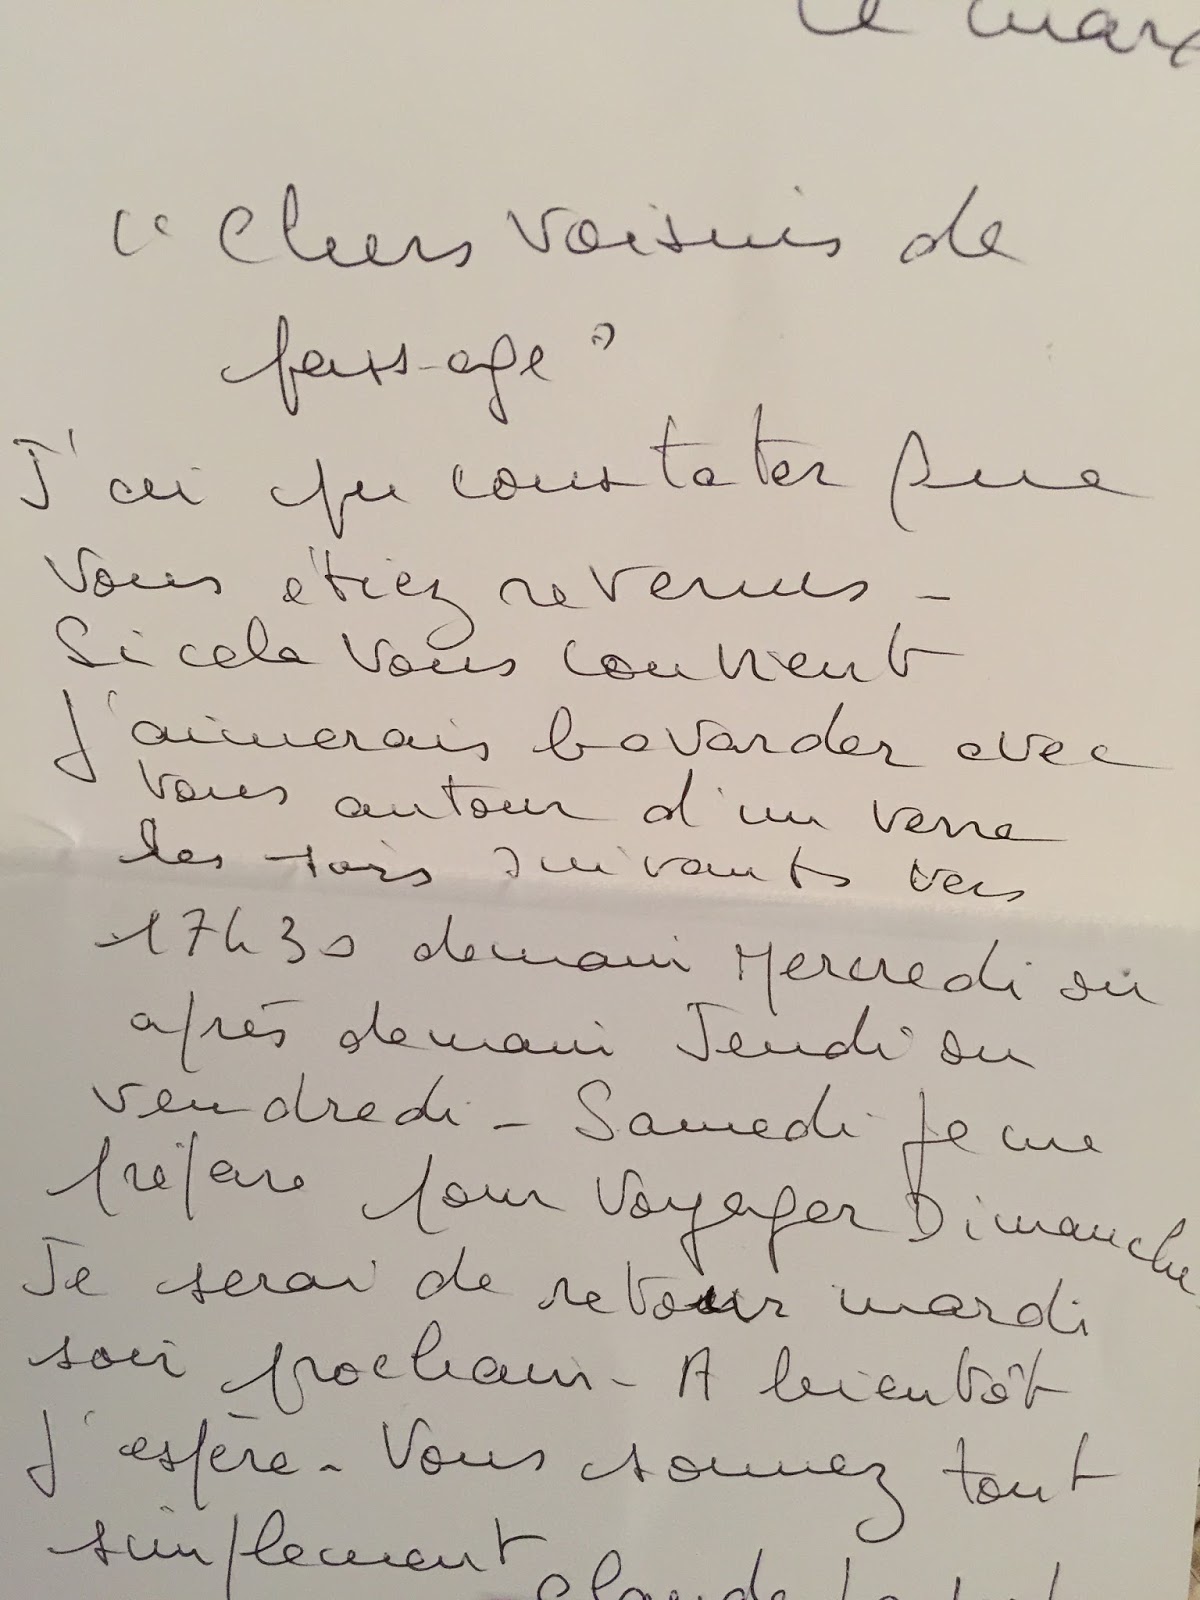 Le mar
" Chers voisins de
passage "
J'ai pu constater que
vous étiez revenus -
Si cela vous convient
j'aimerais bavarder avec
vous autour d'un verre
les soirs suivants vers
17h30 demain Mercredi ou
après demain Jeudi ou
vendredi - Samedi je me
prépare pour voyager Dimanche
Je serai de retour mardi
soir prochain - A bientôt
j'espère - Vous sonnez tout
simplement
Claude